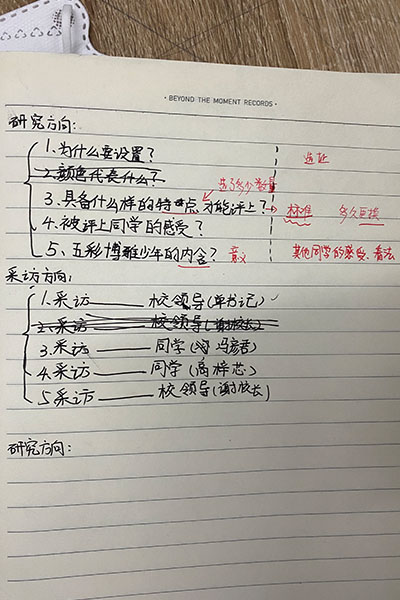 · BEYOND THE MOMENT RECORDS ·
研究方向:
1.为什么要设置? 选址
2.颜色代表什么?
选了多少数量
3.具备什么样的特点才能评上? 标准 多久更换
4.被评上同学的感受?
5、五彩博雅少年的内含? 意义 其他同学的感受、看法
采访方向:
1.采访——校领导(单书记)
2.采访——校领导(谢校长)
3.采访——同学(冯彦君)
4.采访——同学(高梓芯)
5采访——校领导(谢校长)
研究方向: